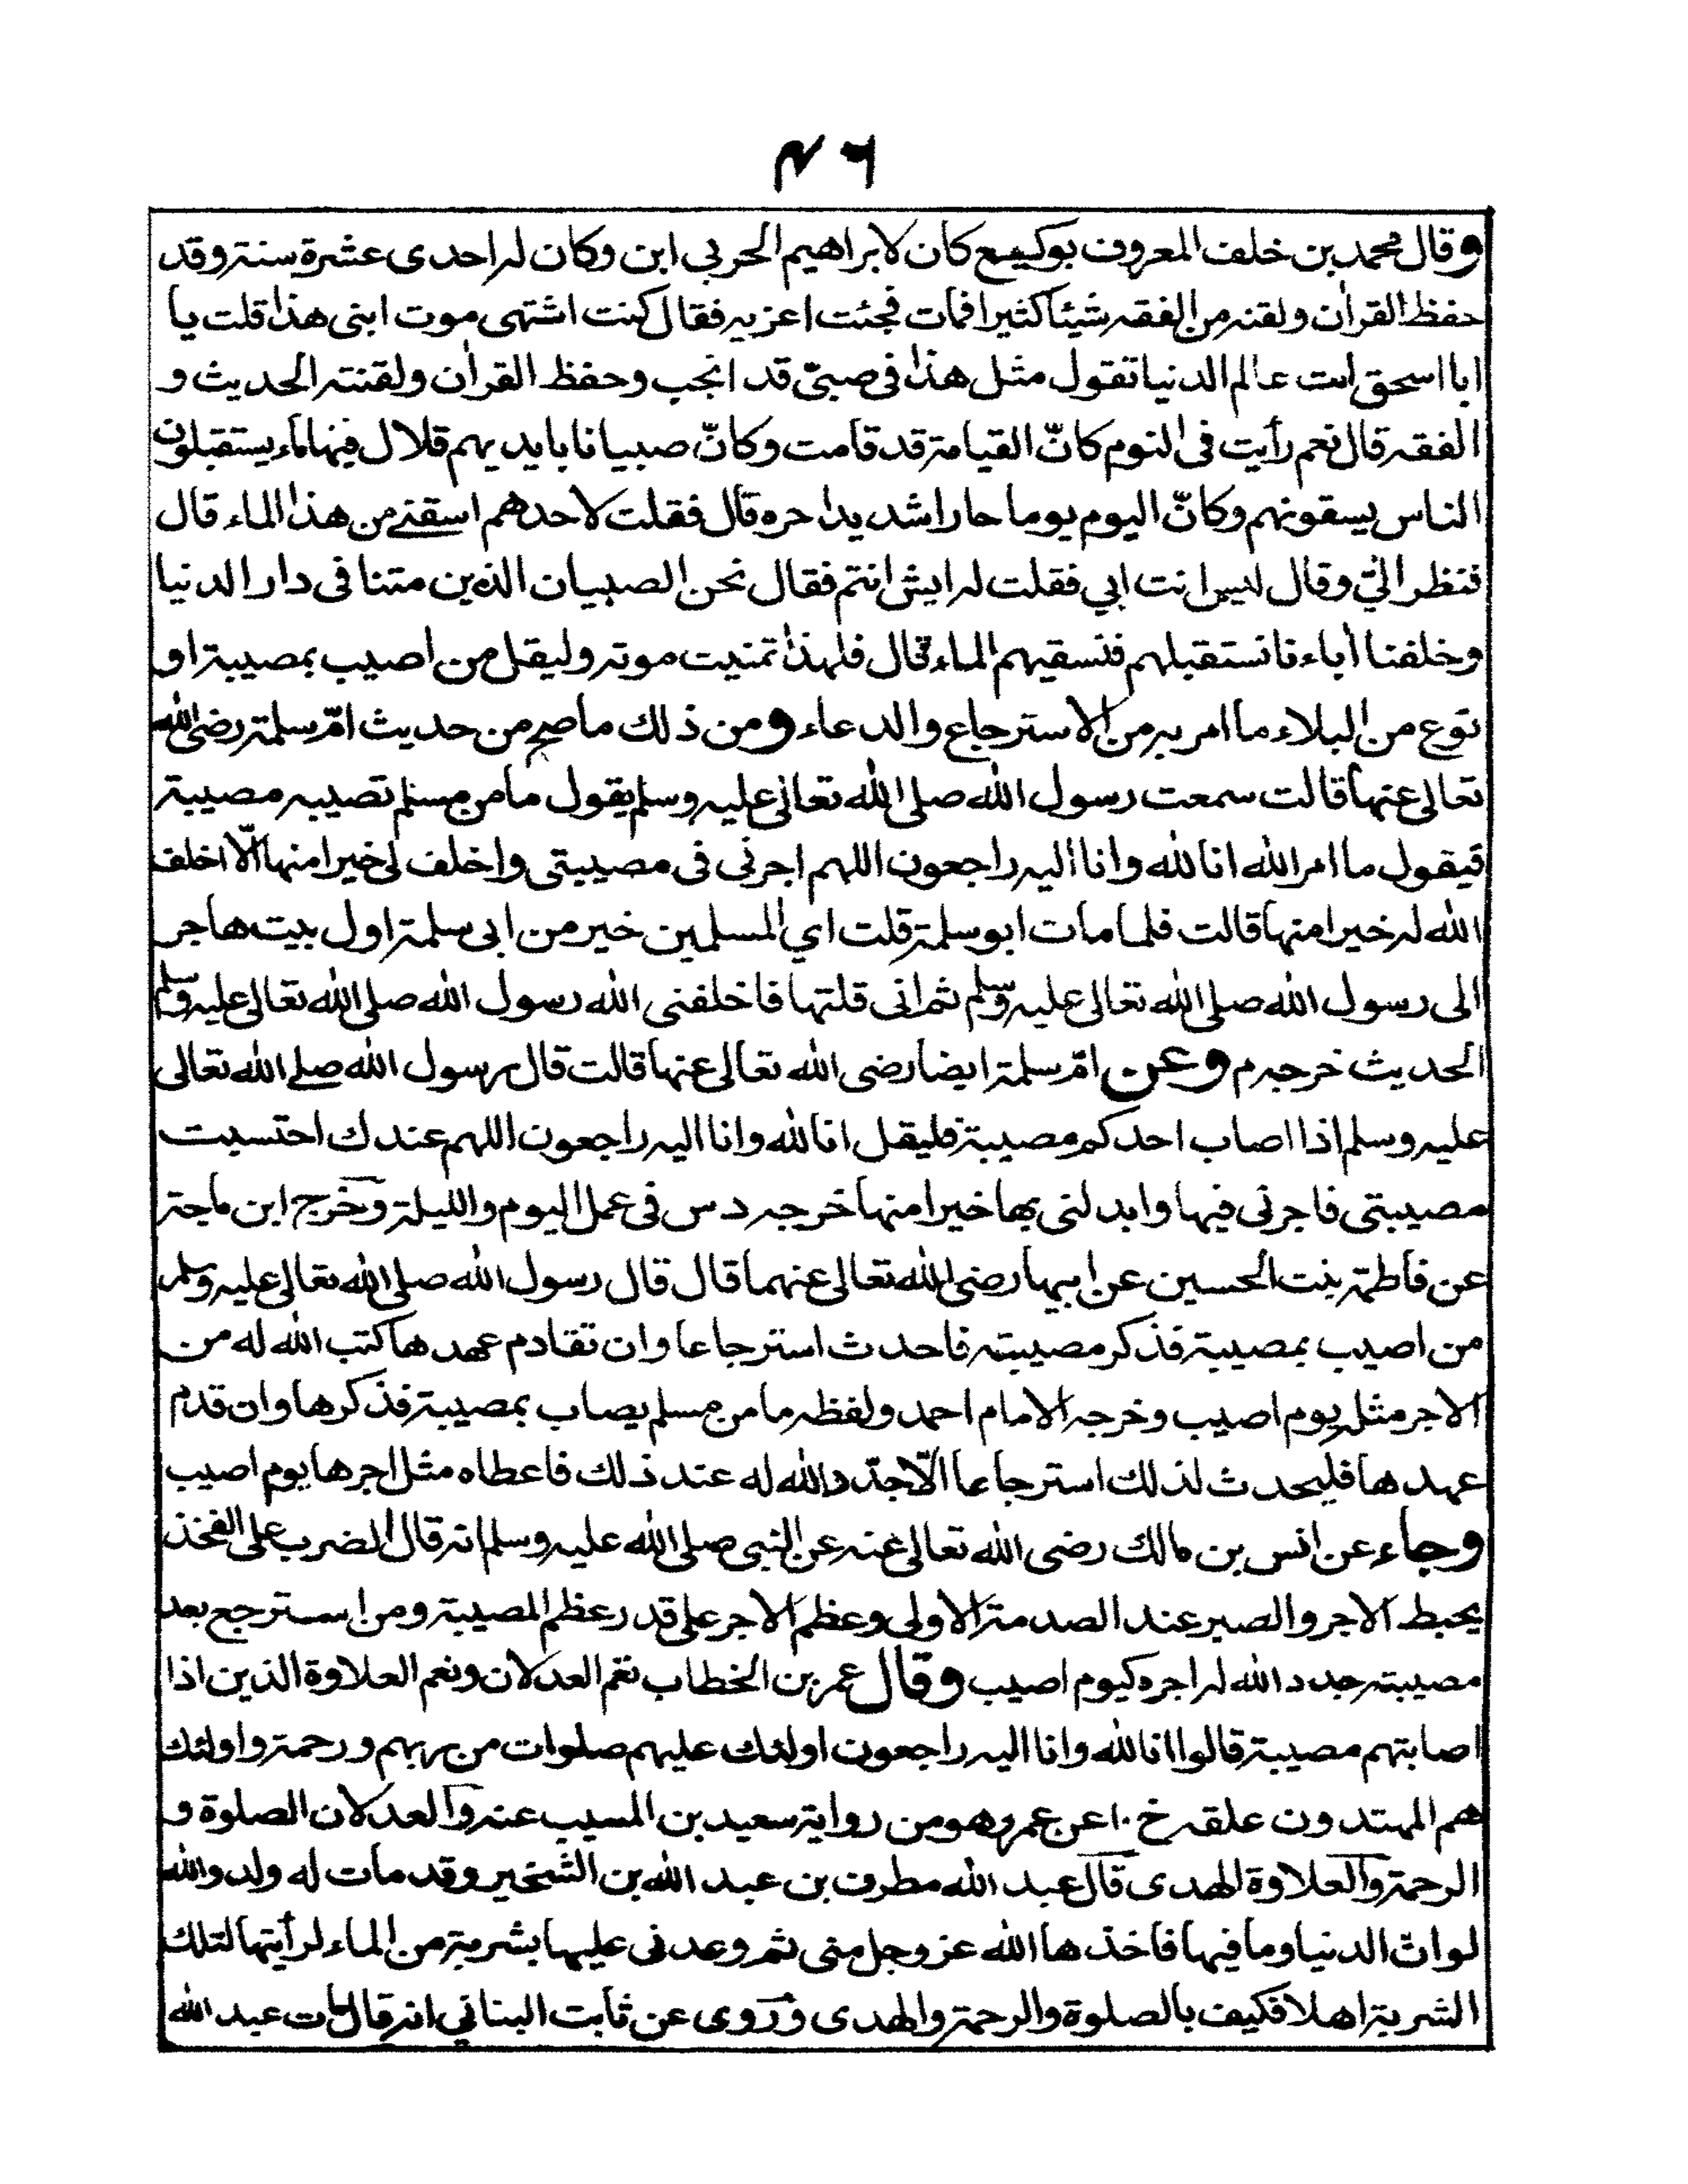 ٤٦
وقال محمد بن خلف المعروف بوكيع كان لابراهيم الحربي ابن وكان له احدى عشرة سنة وقد
حفظ القران ولقنه من الفقه شيئا كثيرا فمات فجئت اعزيه فقال كنت اشتهى موت ابنى هذا قلت يا
ابا اسحق انت عالم الدنيا تقول مثل هذا فى صبىّ قد انجب وحفظ القران ولقنته الحديث و
الفقه قال نعم رأيت فى النوم كانّ القيامة قد قامت وكانّ صبيانا بايديهم قلال فيها ماء يستقبلون
الناس يسقونهم وكانّ اليوم يوما حارا شديدا حره قال فقلت لاحدهم اسقنے من هذا الماء قال
فنظر الىّ وقال ليس انت ابي فقلت له ايش انتم فقال نحن الصبيان الذين متنا فى دار الدنيا
وخلفنا أباءنا نستقبلهم فنسقيهم الماء قال فلهذا تمنيت موته وليقل من اصيب بمصيبة او
نوع من البلاء ما امر به من الاسترجاع والدعاء ومن ذلك ما صح من حديث امّ سلمة رضى الله
تعالى عنها قالت سمعت رسول الله صلى الله تعالى عليه وسلم يقول ما من مسلم تصيبه مصيبة
فيقول ما امر الله انا لله وانا اليه راجعون اللهم اجرنى فى مصيبتى واخلف لى خيرا منها الّا اخلف
الله له خيرا منها قالت فلما مات ابو سلمة قلت اي المسلمين خير من ابى سلمة اول بيت هاجر
الى رسول الله صلى الله تعالى عليه وسلم ثم انى قلتها فاخلفنى الله رسول الله صلى الله تعالى عليه وسلم
الحديث خرجه م وعن امّ سلمة ايضا رضى الله تعالى عنها قالت قال رسول الله صلے الله تعالى
عليه وسلم اذا اصاب احدكم مصيبة فليقل انا لله وانا اليه راجعون اللهم عندك احتسبت
مصيبتى فاجرنى فيها وابدلنى بها خيرا منها خرجه د س فى عمل اليوم والليلة وخرج ابن ماجة
عن فاطمة بنت الحسين عن ابيها رضى الله تعالى عنهما قال قال رسول الله صلى الله تعالى عليه وسلم
من اصيب بمصيبة فذكر مصيبته فاحدث استرجاعا وان تقادم عهدها كتب الله له من
الاجر مثله يوم اصيب وخرجه الامام احمد ولفظه ما من مسلم يصاب بمصيبة فذكرها وان قدم
عهدها فليحدث لذلك استرجاعا الّا جدّد الله له عند ذلك فاعطاه مثل اجرها يوم اصيب
وجاء عن انس بن مالك رضى الله تعالى عنه عن النبى صلى الله عليه وسلم انه قال الضرب على الفخذ
يحبط الاجر والصبر عند الصدمة الاولى وعظم الاجر على قدر عظم المصيبة ومن استرجع بعد
مصيبته جدد الله له اجره كيوم اصيب وقال عمر بن الخطاب نعم العدلان ونعم العلاوة الذين اذا
اصابتهم مصيبة قالوا انا لله وانا اليه راجعون اولئك عليهم صلوات من ربهم ورحمة واولئك
هم المهتدون علقه خ عن عمر وهو من رواية سعيد بن المسيب عنه والعدلان الصلوة و
الرحمة والعلاوة الهدى قال عبد الله مطرف بن عبد الله بن الشخير وقد مات له ولد والله
لو انّ الدنيا وما فيها فاخذها الله عز وجل منى ثم وعدنى عليها بشربة من الماء لرأيتها لتلك
الشربة اهلا فكيف بالصلوة والرحمة والهدى وروى عن ثابت البناني انه قال مات عبد الله